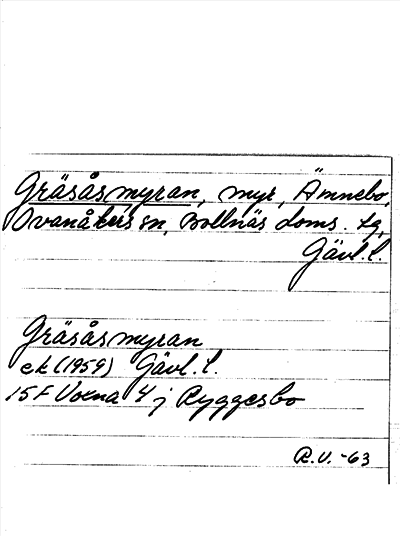 Gräsåsmyran, myr, Ämnebo,
Ovanåkers sn, Bollnäs doms. tg,
Gävl. l.
Gräsåsmyran
ek (1959) Gävl. l.
15F Voxna 4 j Ryggesbo
R.V. -63